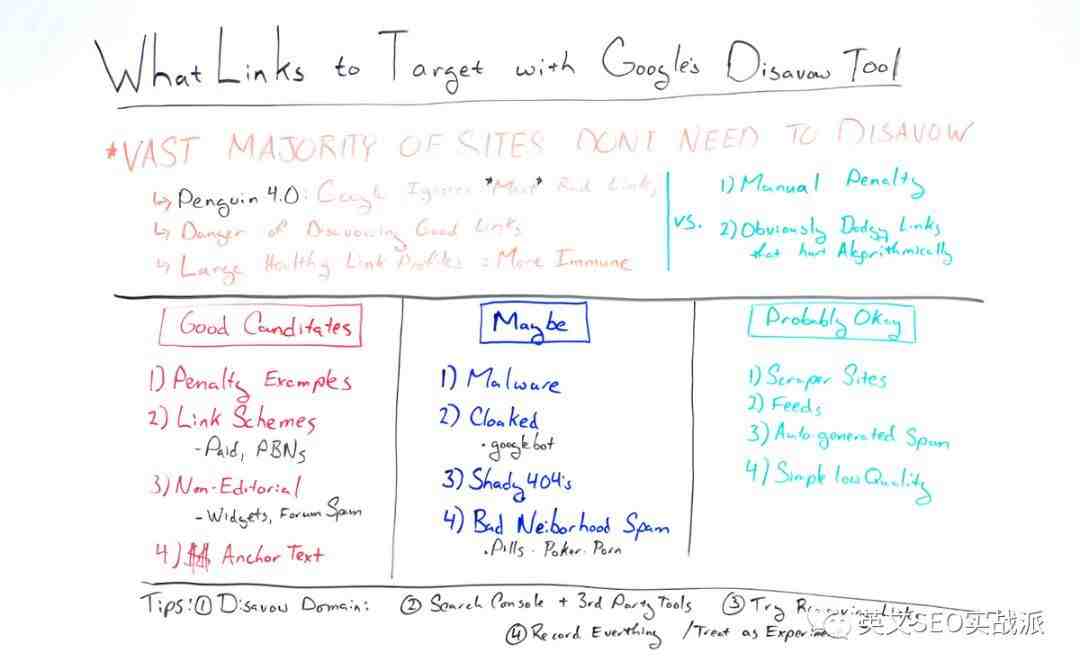 What Links to Target with Google's Disavow Tool
*VAST MAJORITY OF SITES DONT NEED TO DISAVOW
↳ Penguin 4.0: Google Ignores *Most* Bad Links
↳ Danger of Disavowing Good Links
↳ Large Healthy Link Profiles = More Immune
vs.
1) Manual Penalty
2) Obviously Dodgy Links
that hurt Algorithmically
Good Canditates
1) Penalty Examples
2) Link Schemes
- Paid, PBNs
3) Non-Editorial
- Widgets, Forum Spam
4) Anchor Text
Maybe
1) Malware
2) Cloaked
• googlebot
3) Shady 404's
4) Bad Neiborhood Spam
• Pills • Poker • Porn
Probably Okay
1) Scraper Sites
2) Feeds
3) Auto-generated Spam
4) Simple low Quality
Tips: ① Disavow Domain: ② Search Console + 3rd Party Tools ③ Try Removing Links
④ Record Everthing / Treat as Experiment
英文SEO实战派